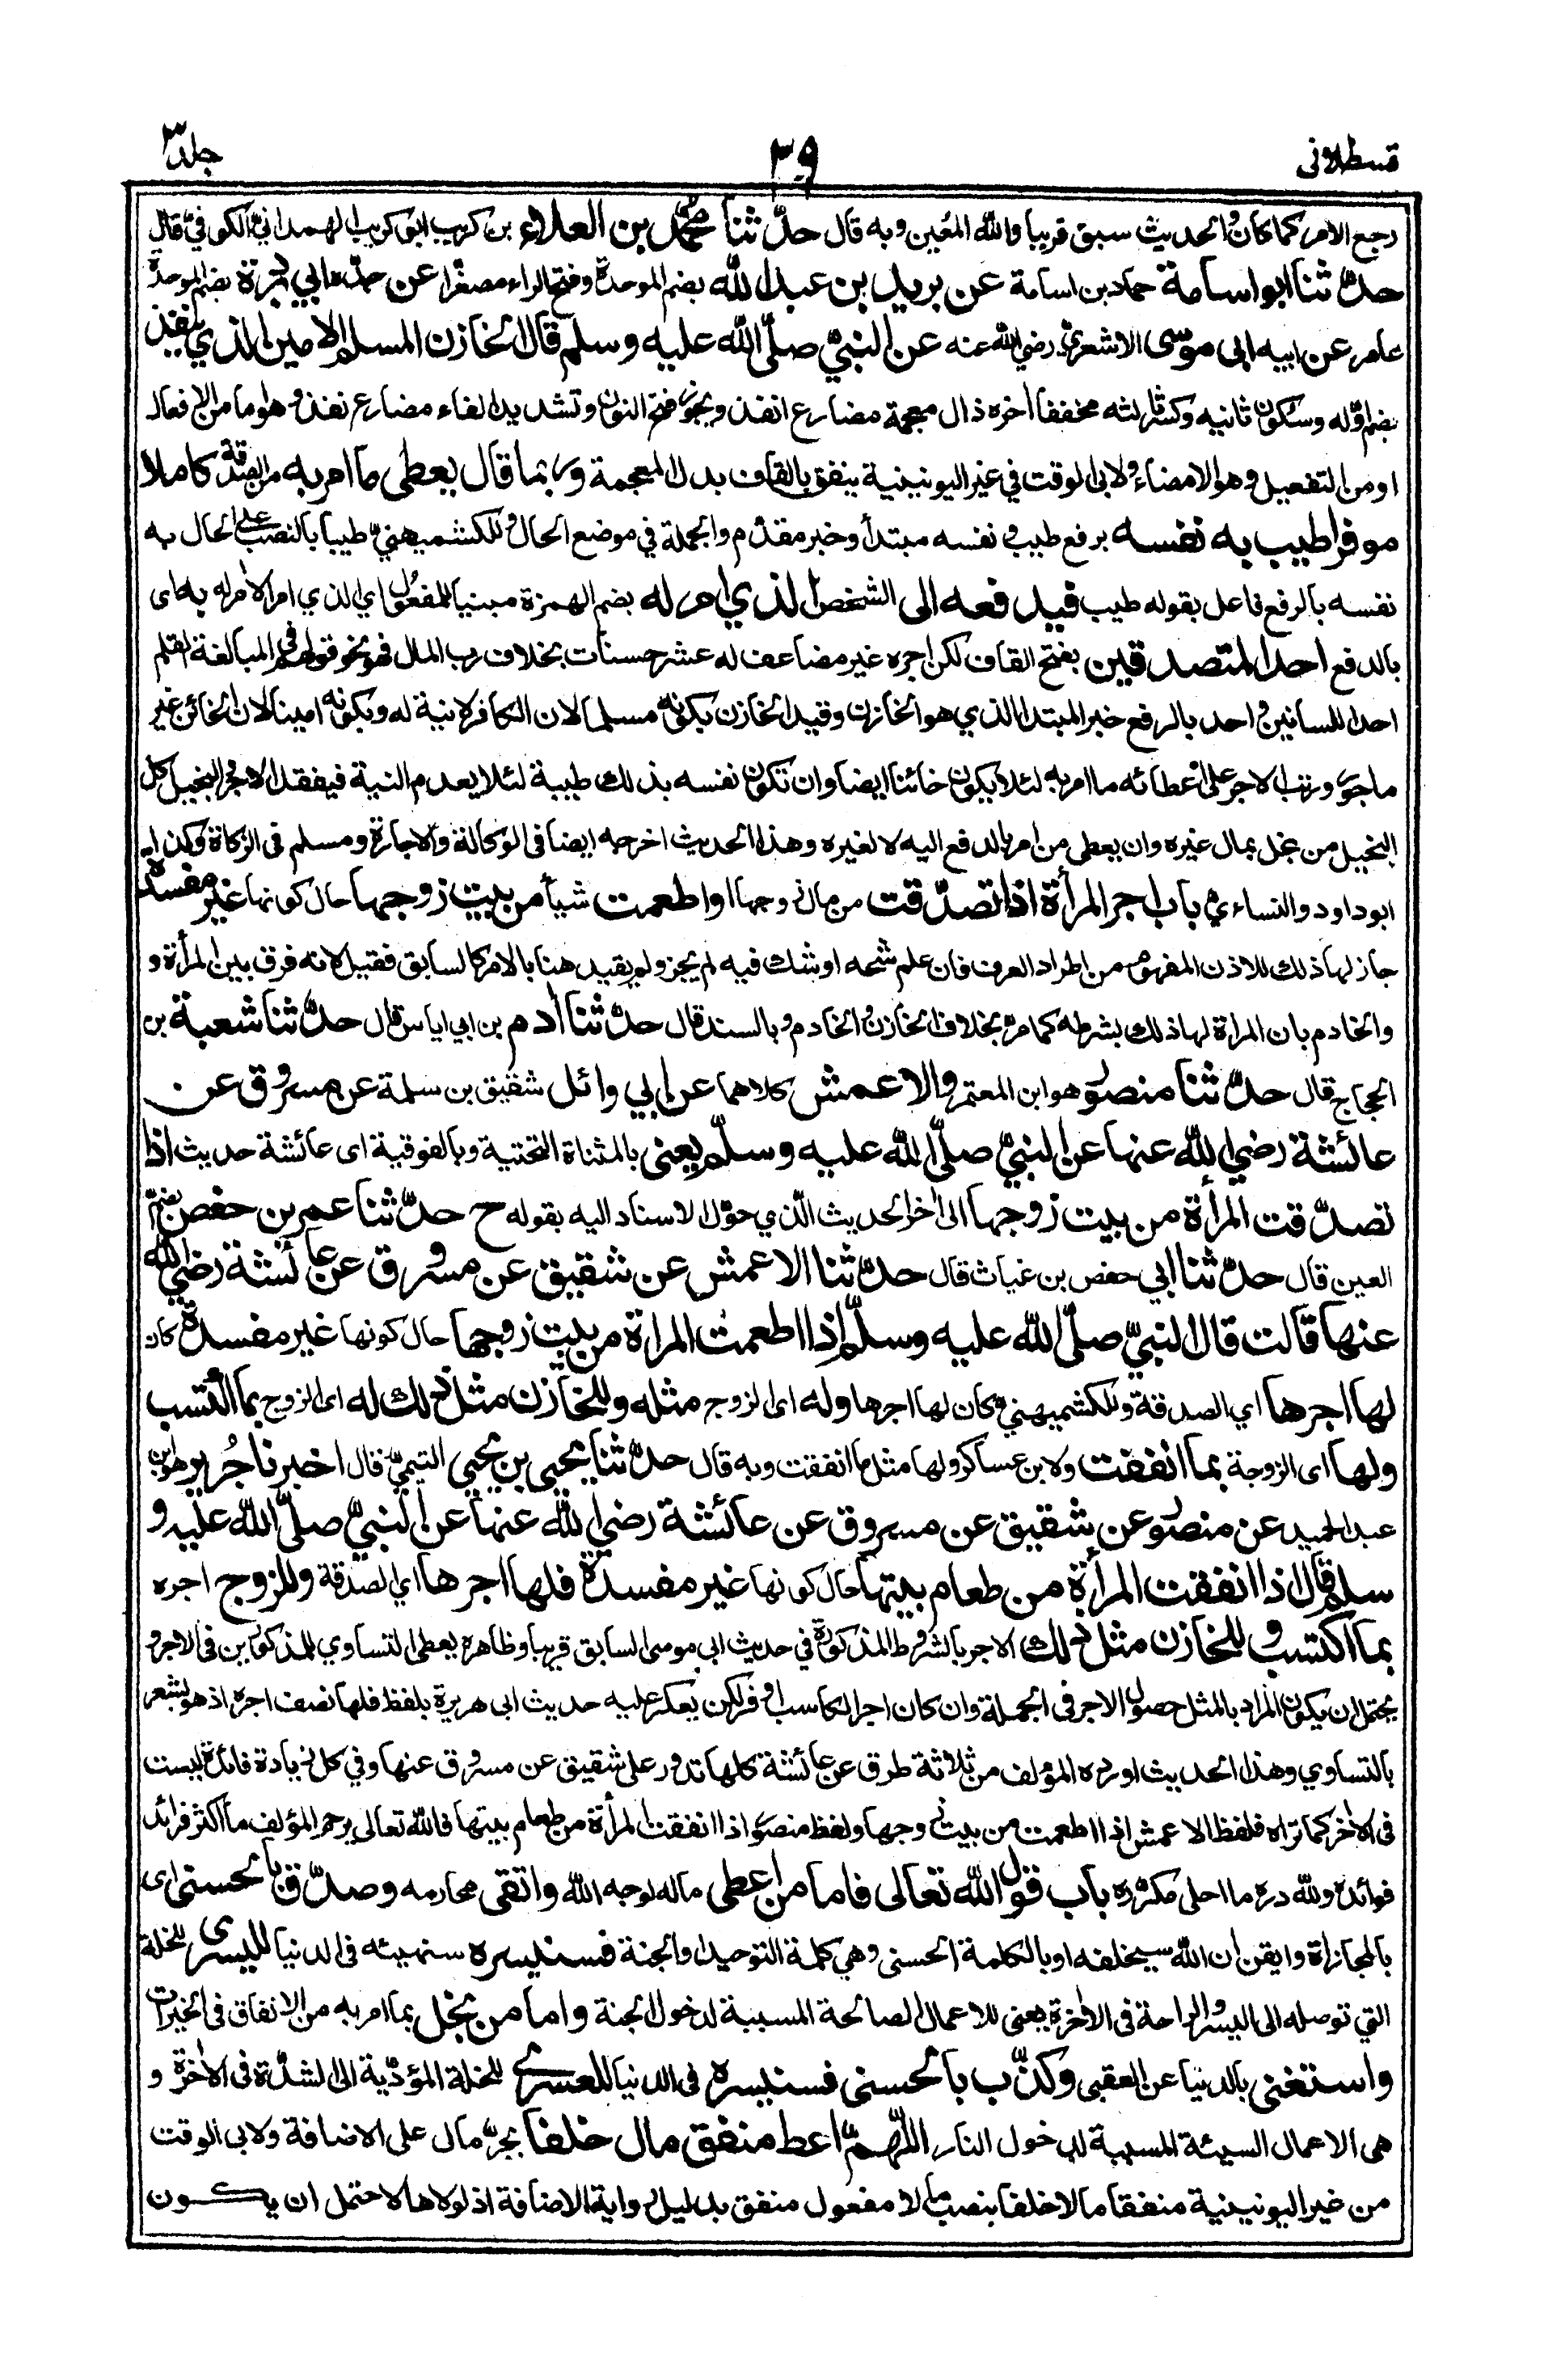 قسطلانى
٣٠٩
جلد ٣
رجع الامر كما كان والحديث سبق قريبا والله المعين وبه قال حدّثنا محمّد بن العلاء بن كريب ابو كريب الهمدانيّ الكوفيّ قال
حدّثنا ابو اسامة حماد بن اسامة عن بريد بن عبد الله بضم الموحدة وفتح الراء مصغرا عن جدّه ابي بردة بضم الموحدة
عامر عن ابيه ابى موسى الاشعريّ رضي الله عنه عن النبيّ صلّى الله عليه وسلم قال الخازن المسلم الامين الذي ينفذ
بضم اوّله وسكون ثانيه وكسر ثالثه مخففا اخره ذال معجمة مضارع انفذ ويجوز فتح النون وتشديد الفاء مضارع نفذ وهو اما من الافعال
او من التفعيل وهو الامضاء ولابى الوقت في غير اليونينية ينفق بالقاف بدل المعجمة وربما قال يعطى ما امر به من الصدقة كاملا
موفرا طيب به نفسه برفع طيب ونفسه مبتدأ وخبر مقدّم والجملة في موضع الحال وللكشميهنيّ طيبا بالنصب على الحال به
نفسه بالرفع فاعل بقوله طيب فيدفعه الى الشخص الذي امر له بضم الهمزة مبنيا للمفعول اي الذي امر الآمر له به اى
بالدفع احد المتصدقين بفتح القاف لكن اجره غير مضاعف له عشر حسنات بخلاف رب المال فهو نحو قولهم في المبالغة القلم
احد اللسانين واحد بالرفع خبر المبتدا الذي هو الخازن وقيد الخازن بكونه مسلما لان الكافر لا نية له وبكونه امينا لان الخائن غير
ماجور ورتب الاجر على اعطائه ما امر به لئلا يكون خائنا ايضا وان تكون نفسه بذلك طيبة لئلا يعدم النية فيفقد الاجر والبخيل كل
البخيل من بخل بمال غيره وان يعطى من امر بالدفع اليه لا لغيره وهذا الحديث اخرجه ايضا فى الوكالة والاجارة ومسلم فى الزكاة وكذا
ابو داود والنساءي باب اجر المرأة اذا تصدّقت من مال زوجها او اطعمت شيأ من بيت زوجها حال كونها غير مفسدة
جاز لها ذلك للاذن المفهوم من اطراد العرف فان علم شحه او شك فيه لم يجز ولم يقيد هنا بالامر كالسابق فقيل لانه فرق بين المرأة و
والخادم بان المراة لها ذلك بشرطه كما مر بخلاف الخازن والخادم وبالسند قال حدّثنا آدم بن ابي اياس قال حدّثنا شعبة بن
الحجاج قال حدّثنا منصور هو ابن المعتمر والاعمش كلاهما عن ابي وائل شقيق بن سلمة عن مسروق عن
عائشة رضي الله عنها عن النبيّ صلّى الله عليه وسلّم يعنى بالمثناة التحتية وبالفوقية اى عائشة حديث اذا
تصدّقت المرأة من بيت زوجها الى آخر الحديث الّذي حوّل الاسناد اليه بقوله ح حدّثنا عمر بن حفص بضم
العين قال حدّثنا ابي حفص بن غياث قال حدّثنا الاعمش عن شقيق عن مسروق عن عائشة رضي الله
عنها قالت قال النبيّ صلّى الله عليه وسلّم اذا اطعمت المراة من بيت زوجها حال كونها غير مفسدة كان
لها اجرها اي الصدقة وللكشميهني وكان لها اجرها وله اى الزوج مثله وللخازن مثل ذلك له اى الزوج بما اكتسب
ولها اى الزوجة بما انفقت ولابن عساكر ولها مثل ما انفقت وبه قال حدّثنا يحيى بن يحيى التيميّ قال اخبرنا جرير هو ابن
عبد الحميد عن منصور عن شقيق عن مسروق عن عائشة رضي الله عنها عن النبيّ صلّى الله عليه و
سلم قال اذا انفقت المرأة من طعام بيتها حال كونها غير مفسدة فلها اجرها اي الصدقة وللزوج اجره
بما اكتسب وللخازن مثل ذلك الاجر بالشروط المذكورة في حديث ابي موسى السابق قريبا وظاهره يعطى التساوي للمذكورين فى الاجر و
يحتمل ان يكون المراد بالمثل حصول الاجر فى الجملة وان كان اجر الكاسب اوفر لكن يعكر عليه حديث ابى هريرة بلفظ فلها نصف اجره اذ هو يشعر
بالتساوي وهذا الحديث اورده المؤلف من ثلاثة طرق عن عائشة كلها تدور على شقيق عن مسروق عنها وفي كل زيادة فائدة ليست
فى الآخر كما تراه فلفظ الاعمش اذا اطعمت من بيت زوجها ولفظ منصور اذا انفقت المرأة من طعام بيتها فالله تعالى يرحم المؤلف ما اكثر فرائد
فوائده ولله دره ما احلى مكرره باب قول الله تعالى فاما من اعطى ماله لوجه الله واتقى محارمه وصدّق بالحسنى اى
بالمجازاة وايقن ان الله سيخلفه او بالكلمة الحسنى وهي كلمة التوحيد او الجنة فسنيسره سنهيئه فى الدنيا لليسرى للخلة
التي توصله الى اليسر والراحة فى الآخرة يعنى للاعمال الصالحة المسببة لدخول الجنة واما من بخل بما امر به من الانفاق فى الخيرات
واستغنى بالدنيا عن العقبى وكذّب بالحسنى فسنيسره فى الدنيا للعسرى للخلة المؤدّية الى الشدّة فى الآخرة و
هى الاعمال السيئة المسببة لدخول النار اللّهمّ اعط منفق مال خلفا بجرّ مال على الاضافة ولابى الوقت
من غير اليونينية منفقا مالا خلفا بنصب مالا مفعول منفق بدليل رواية الاضافة اذ لولاها لاحتمل ان يكون